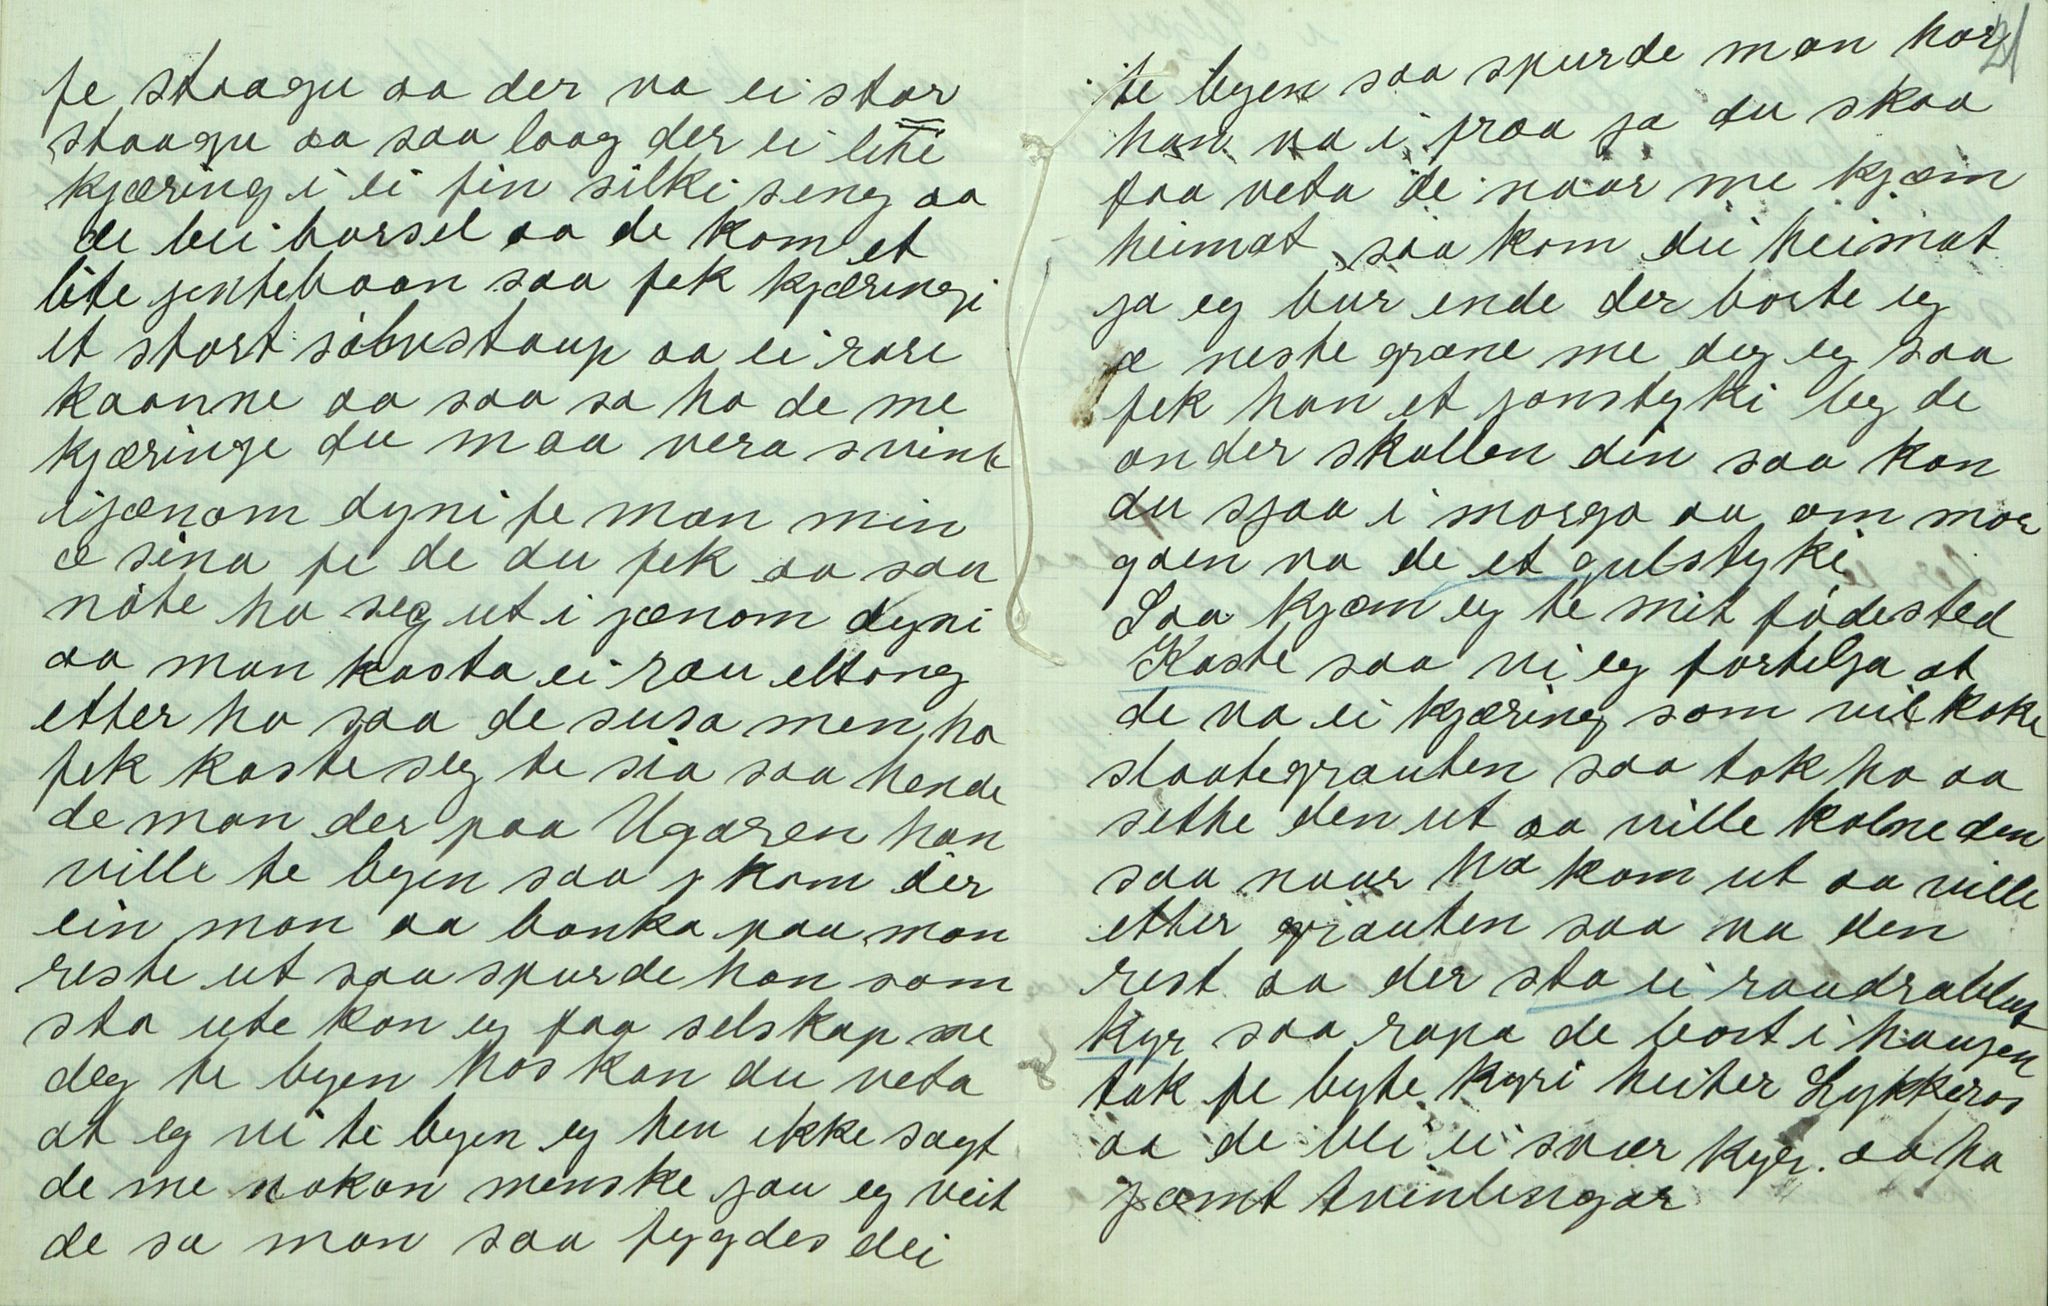 fe staagu aa der va ei stor
staagu aa saa laag der ei liti
kjæring i ei fin silki seng aa
de bei barsel aa de kom et
lite jentebaan saa fek kjæringi
et stort sölvstaup aa ei rari
kaanne aa saa sa ho de me
kjæringe du maa vera svint
ijænom dyni fe man min
æ sina fe de du fek aa saa
nöte ho seg ut i jænom dyni
aa man kasta ei rau eltong
etter ho saa de susa men ho
fek kaste seg te sia saa hende
de man der paa Ugaren han
ville te byen saa kom der
ein man aa banka paa man
reste ut saa spurde han som
sto ute kan eg faa selskap me
deg te byen hos kan du veta
at eg vi te byen eg hev ikke sagt
de me nokon menske jau eg veit
de sa man saa fygdes dei
21
te byen saa spurde man hor
han va i fraa ja du skaa
faa veta de naar me kjæm
heimat saa kom dei heimat
ja eg bur ende der borte eg
æ neste grane me deg eg saa
fek han et jonstyki leg de
onder skallen din saa kan
du sjaa i morgo aa om mor
goen va de et gulstyki
Saa kjæm eg te mit födested
Kaste saa vi eg fortelja at
de va ei kjæring som vil koke
slaategrauten saa tok ho aa
sethe den ut aa ville kolne den
saa naar ho kom ut aa ville
etter grauten saa va den
rest aa der sto ei raudrablut
kyr saa ropa de bort i haugen
tak fe byte kyri heiter Lykkeros
aa de blei ei svær kyr. aa ho
jæmt tvinlingar